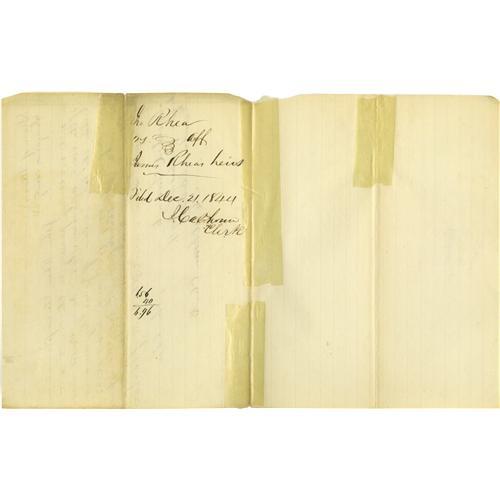 Jno. Rhea
vs } aff
James Rheas heirs
Filed Dec. 21, 1844
J. Calhoun
Clerk
656
40
6.96